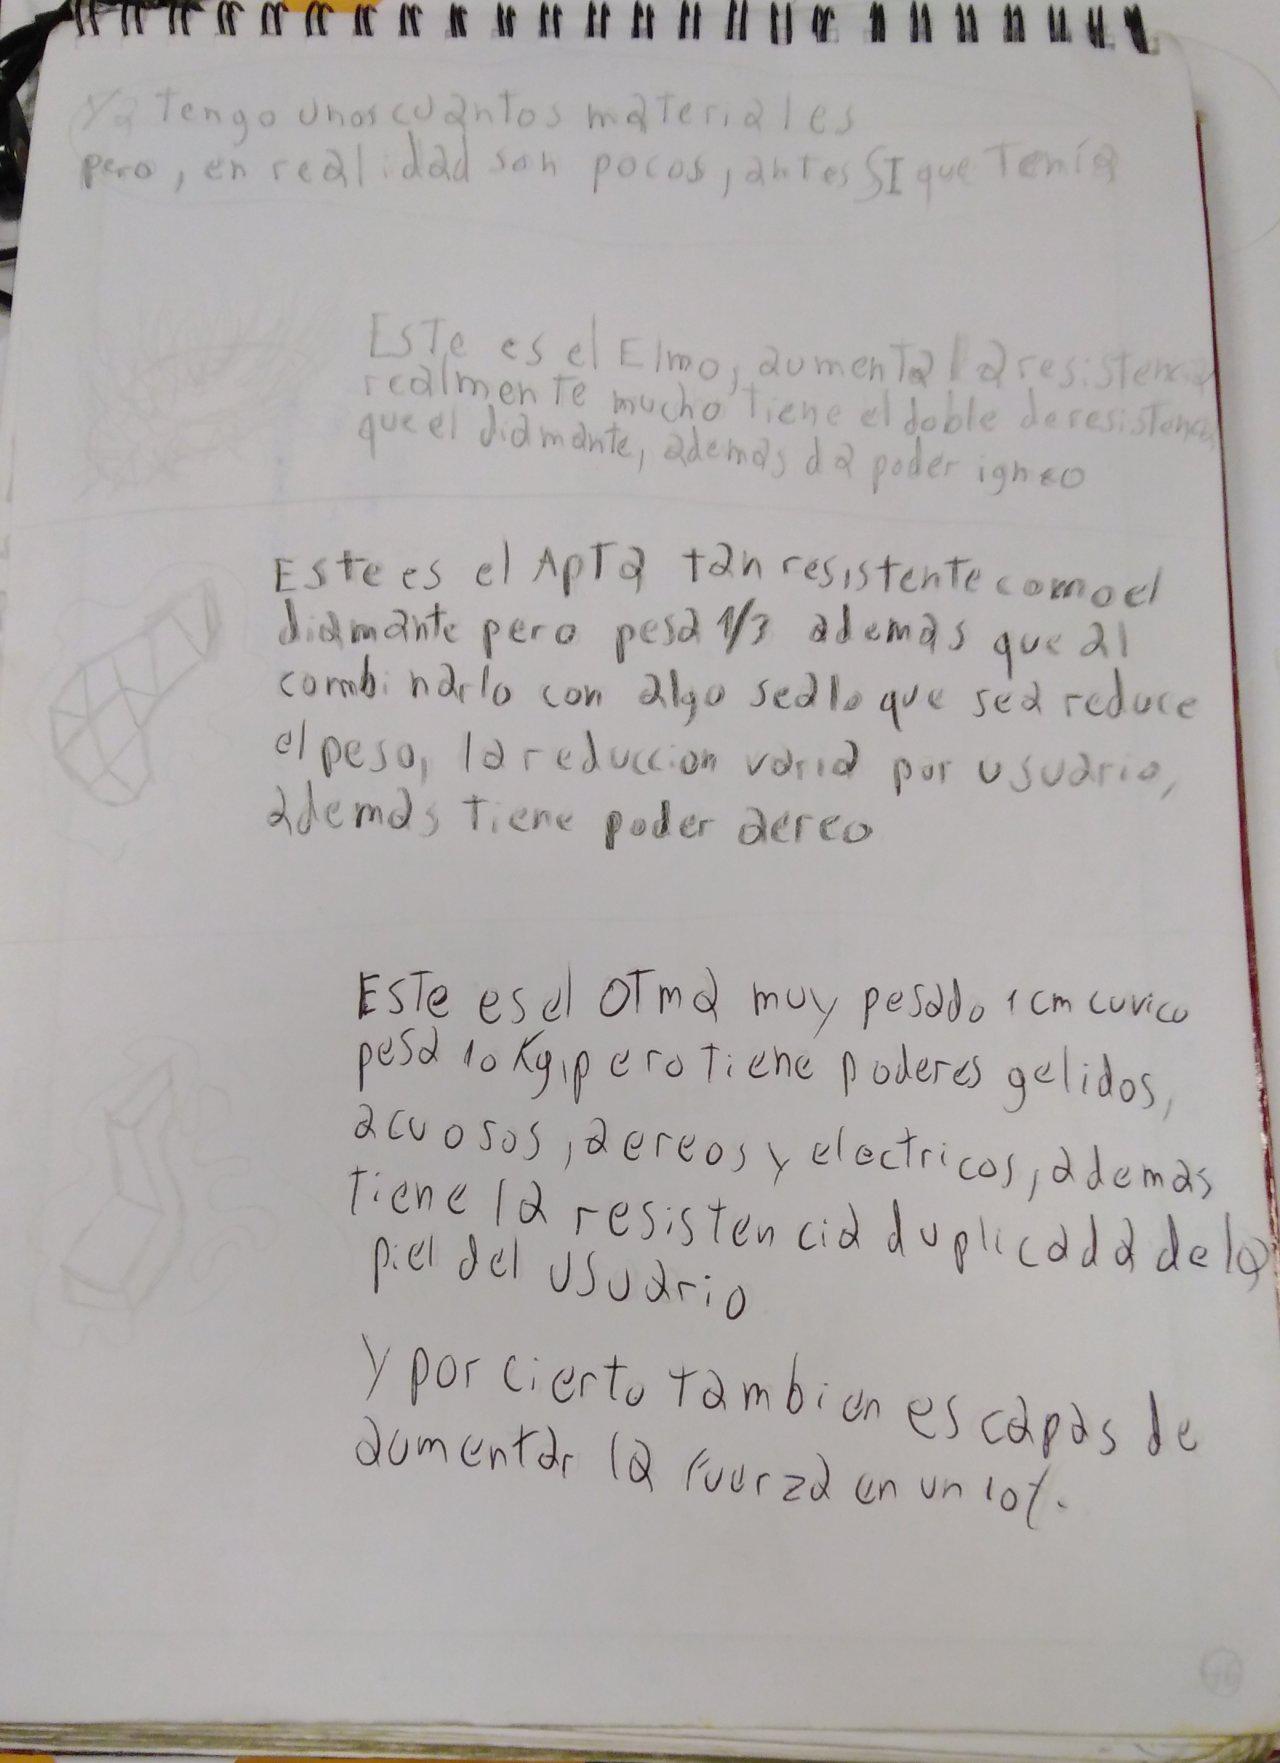 Ya tengo unos cuantos materiales
pero, en realidad son pocos, antes SI que Tenía
Este es el Elmo, aumenta la resistencia
realmente mucho tiene el doble de resistencia
que el diamante, ademas da poder igneo
Este es el ApTa tan resistente como el
diamante pero pesa 1/3 ademas que al
combinarlo con algo sea lo que sea reduce
el peso, la reduccion varia por usuario,
ademas tiene poder aereo
Este es el OTma muy pesado 1 cm cuvico
pesa 10 Kg, pero tiene poderes gelidos,
acuosos, aereos y electricos, ademas
tiene la resistencia duplicada de la
piel del usuario
Y por cierto tambien es capas de
aumentar la fuerza en un 10%.